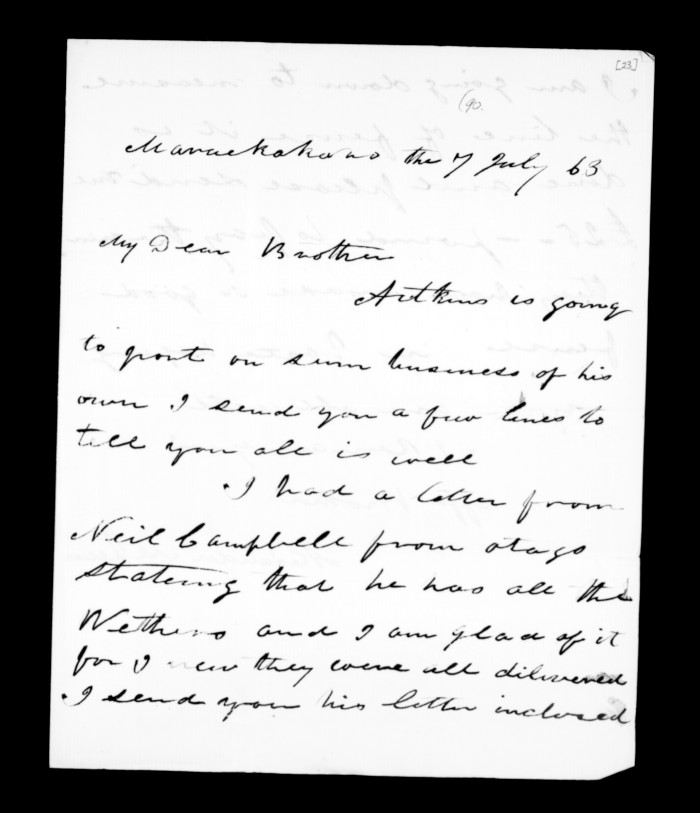 [23]
(90.
Maraekakaho the 7 July 63
My Dear Brother
Aitkins is going
to goont on sum business of his
own I send you a few lines to
tell you all is well
I had a letter from
Neil Campbell from otago
stateing that he has all the
Wethers and I am glad of it
for I new they were all dilivered
I send you his letter inclosed